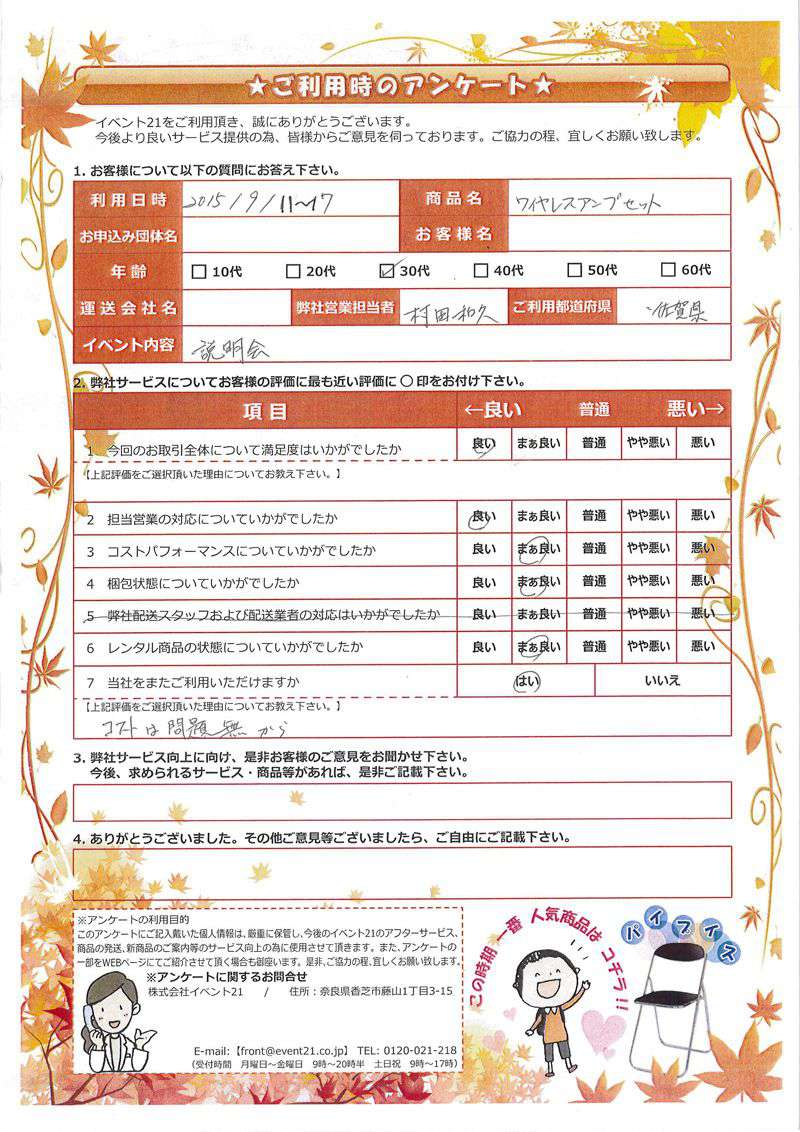 ★ご利用時のアンケート★
イベント21をご利用頂き、誠にありがとうございます。
今後より良いサービス提供の為、皆様からご意見を伺っております。ご協力の程、宜しくお願い致します。
1. お客様について以下の質問にお答え下さい。
利用日時 2015/9/11~17 商品名 ワイヤレスアンプセット
お申込み団体名 お客様名
年齢 10代 20代 30代 40代 50代 60代
運送会社名 弊社営業担当者 村田和久 ご利用都道府県 佐賀県
イベント内容 説明会
2. 弊社サービスについてお客様の評価に最も近い評価に 〇 印をお付け下さい。
項目 ←良い 普通 悪い→
1 今回のお取引全体について満足度はいかがでしたか 良い まぁ良い 普通 やや悪い 悪い
【上記評価をご選択頂いた理由についてお教え下さい。】
2 担当営業の対応についていかがでしたか 良い まぁ良い 普通 やや悪い 悪い
3 コストパフォーマンスについていかがでしたか 良い まぁ良い 普通 やや悪い 悪い
4 梱包状態についていかがでしたか 良い まぁ良い 普通 やや悪い 悪い
5 弊社配送スタッフおよび配送業者の対応はいかがでしたか 良い まぁ良い 普通 やや悪い 悪い
6 レンタル商品の状態についていかがでしたか 良い まぁ良い 普通 やや悪い 悪い
7 当社をまたご利用いただけますか はい いいえ
【上記評価をご選択頂いた理由についてお教え下さい。】
コストは問題無から
3. 弊社サービス向上に向け、是非お客様のご意見をお聞かせ下さい。
今後、求められるサービス・商品等があれば、是非ご記載下さい。
4. ありがとうございました。その他ご意見等ございましたら、ご自由にご記載下さい。
※アンケートの利用目的
このアンケートにご記入戴いた個人情報は、厳重に保管し、今後のイベント21のアフターサービス、
商品の発送、新商品のご案内等のサービス向上の為に使用させて頂きます。また、アンケートの
一部をWEBページにてご紹介させて頂く場合も御座います。是非、ご協力の程、宜しくお願い致します。
※アンケートに関するお問合せ
株式会社イベント21 / 住所：奈良県香芝市藤山1丁目3-15
E-mail:【front@event21.co.jp】 TEL: 0120-021-218
（受付時間 月曜日～金曜日 9時～20時半 土日祝 9時～17時）
この時期一番人気商品はコチラ!!
パイプイス